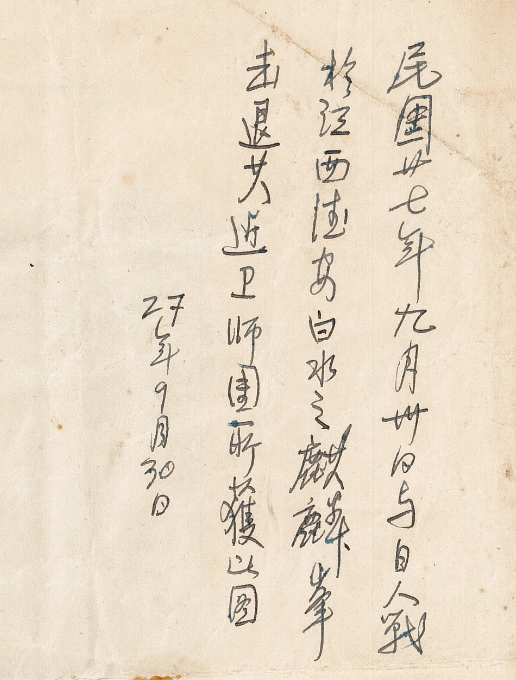 民國廿七年九月卅日与日人戰
於江西德安白水之麒麟峯
击退其近卫师團所獲此图
27年9月30日